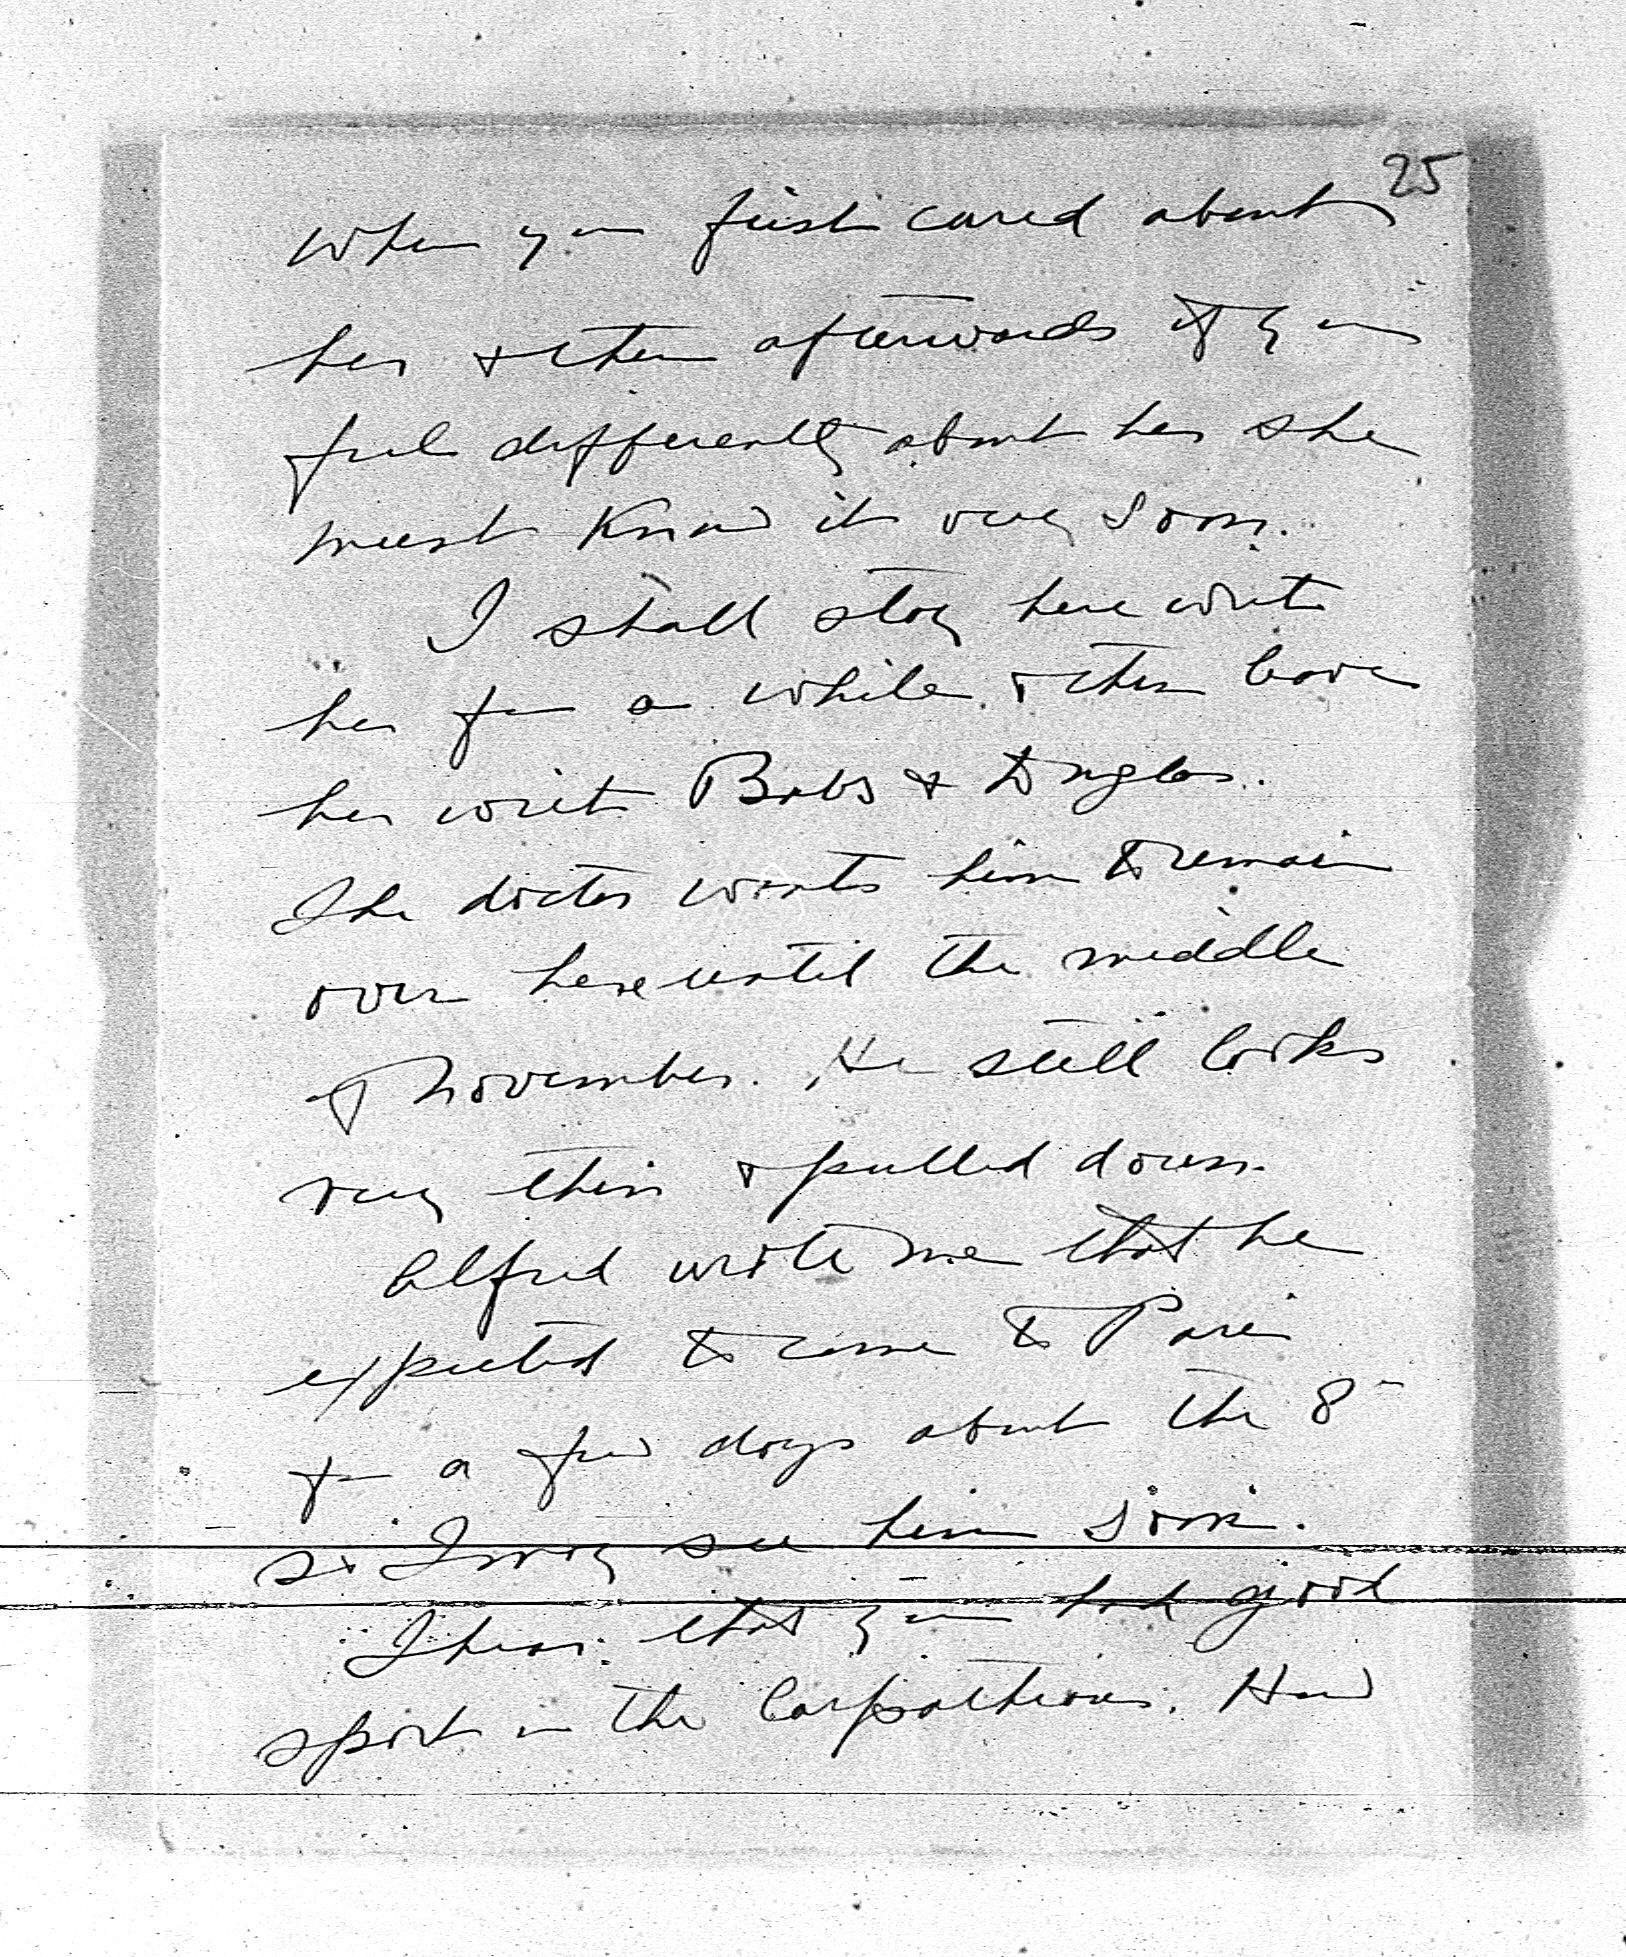 25
when you first cared about
her & then afterwards if you
feel differently about her she
must know it very soon.
I shall stay here with
her for a while & then leave
her with Babs & Douglas.
The doctor wants him to remain
over here until the middle
of November. He still looks
very thin & pulled down.
Alfred wrote me that he
expected to come to Paris
for a few days about the 8
so I may see him soon.
I hear that you had good
sport in the Carpathians. How